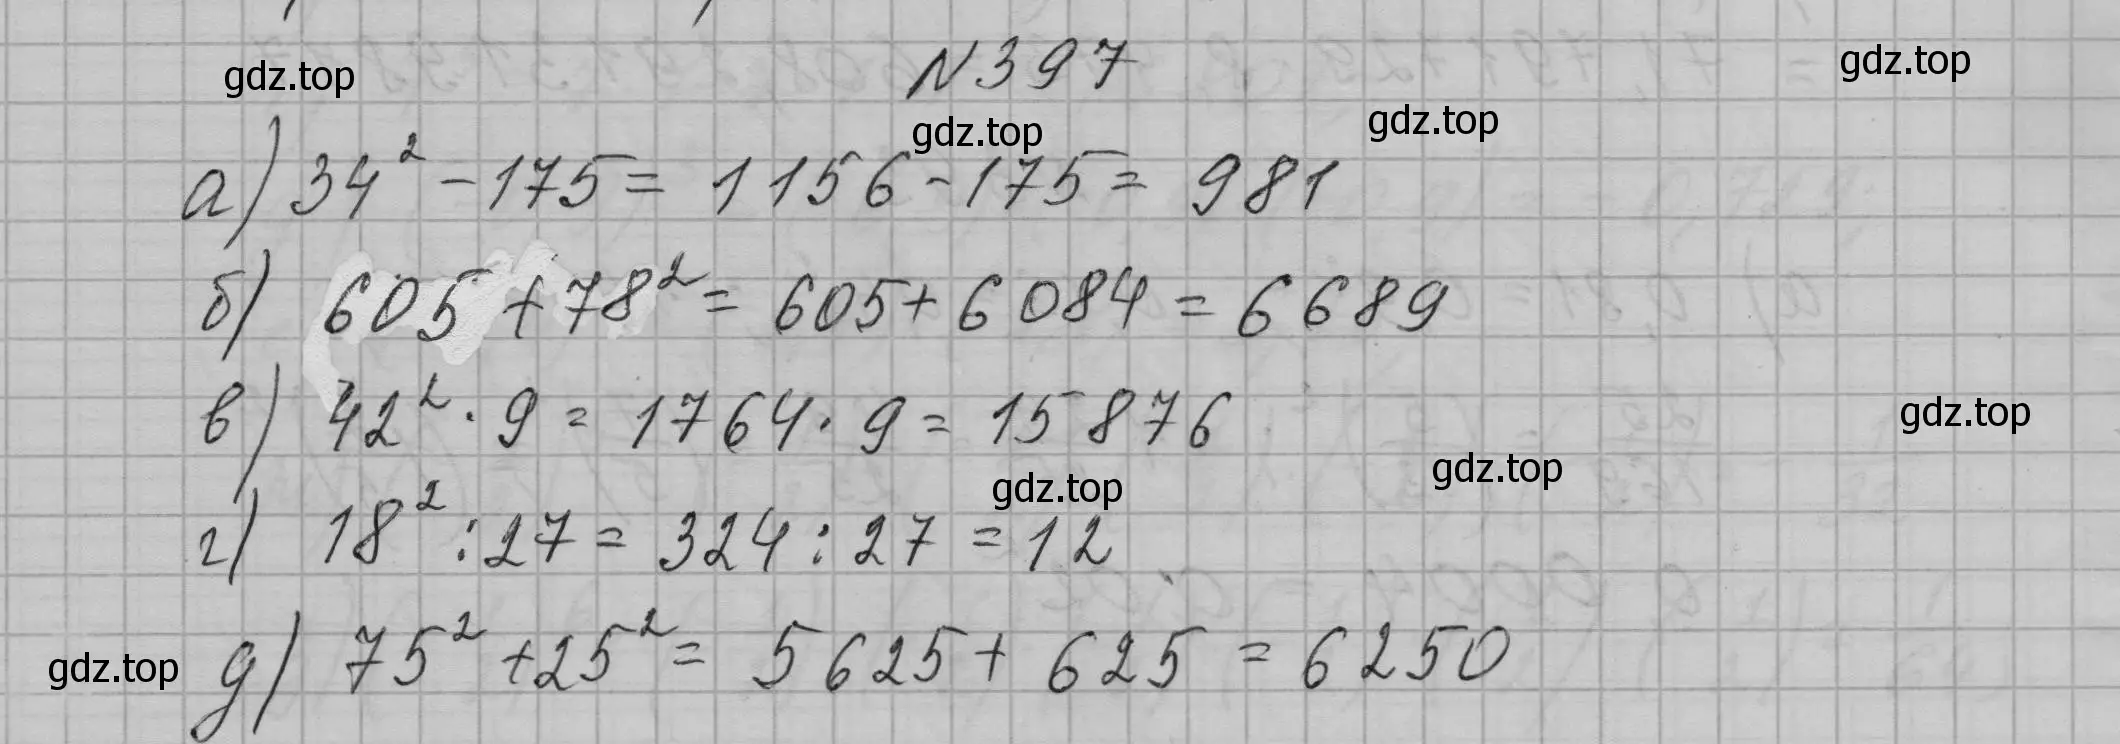 gdz.top №397 gdz.top
gdz.top gdz.top
а) 34² - 175 = 1156 - 175 = 981
б) 605 + 78² = 605 + 6084 = 6689
в) 42² · 9 = 1764 · 9 = 15876 gdz.top
gdz.top gdz.top
г) 18² : 27 = 324 : 27 = 12
gdz.top д) 75² + 25² = 5625 + 625 = 6250